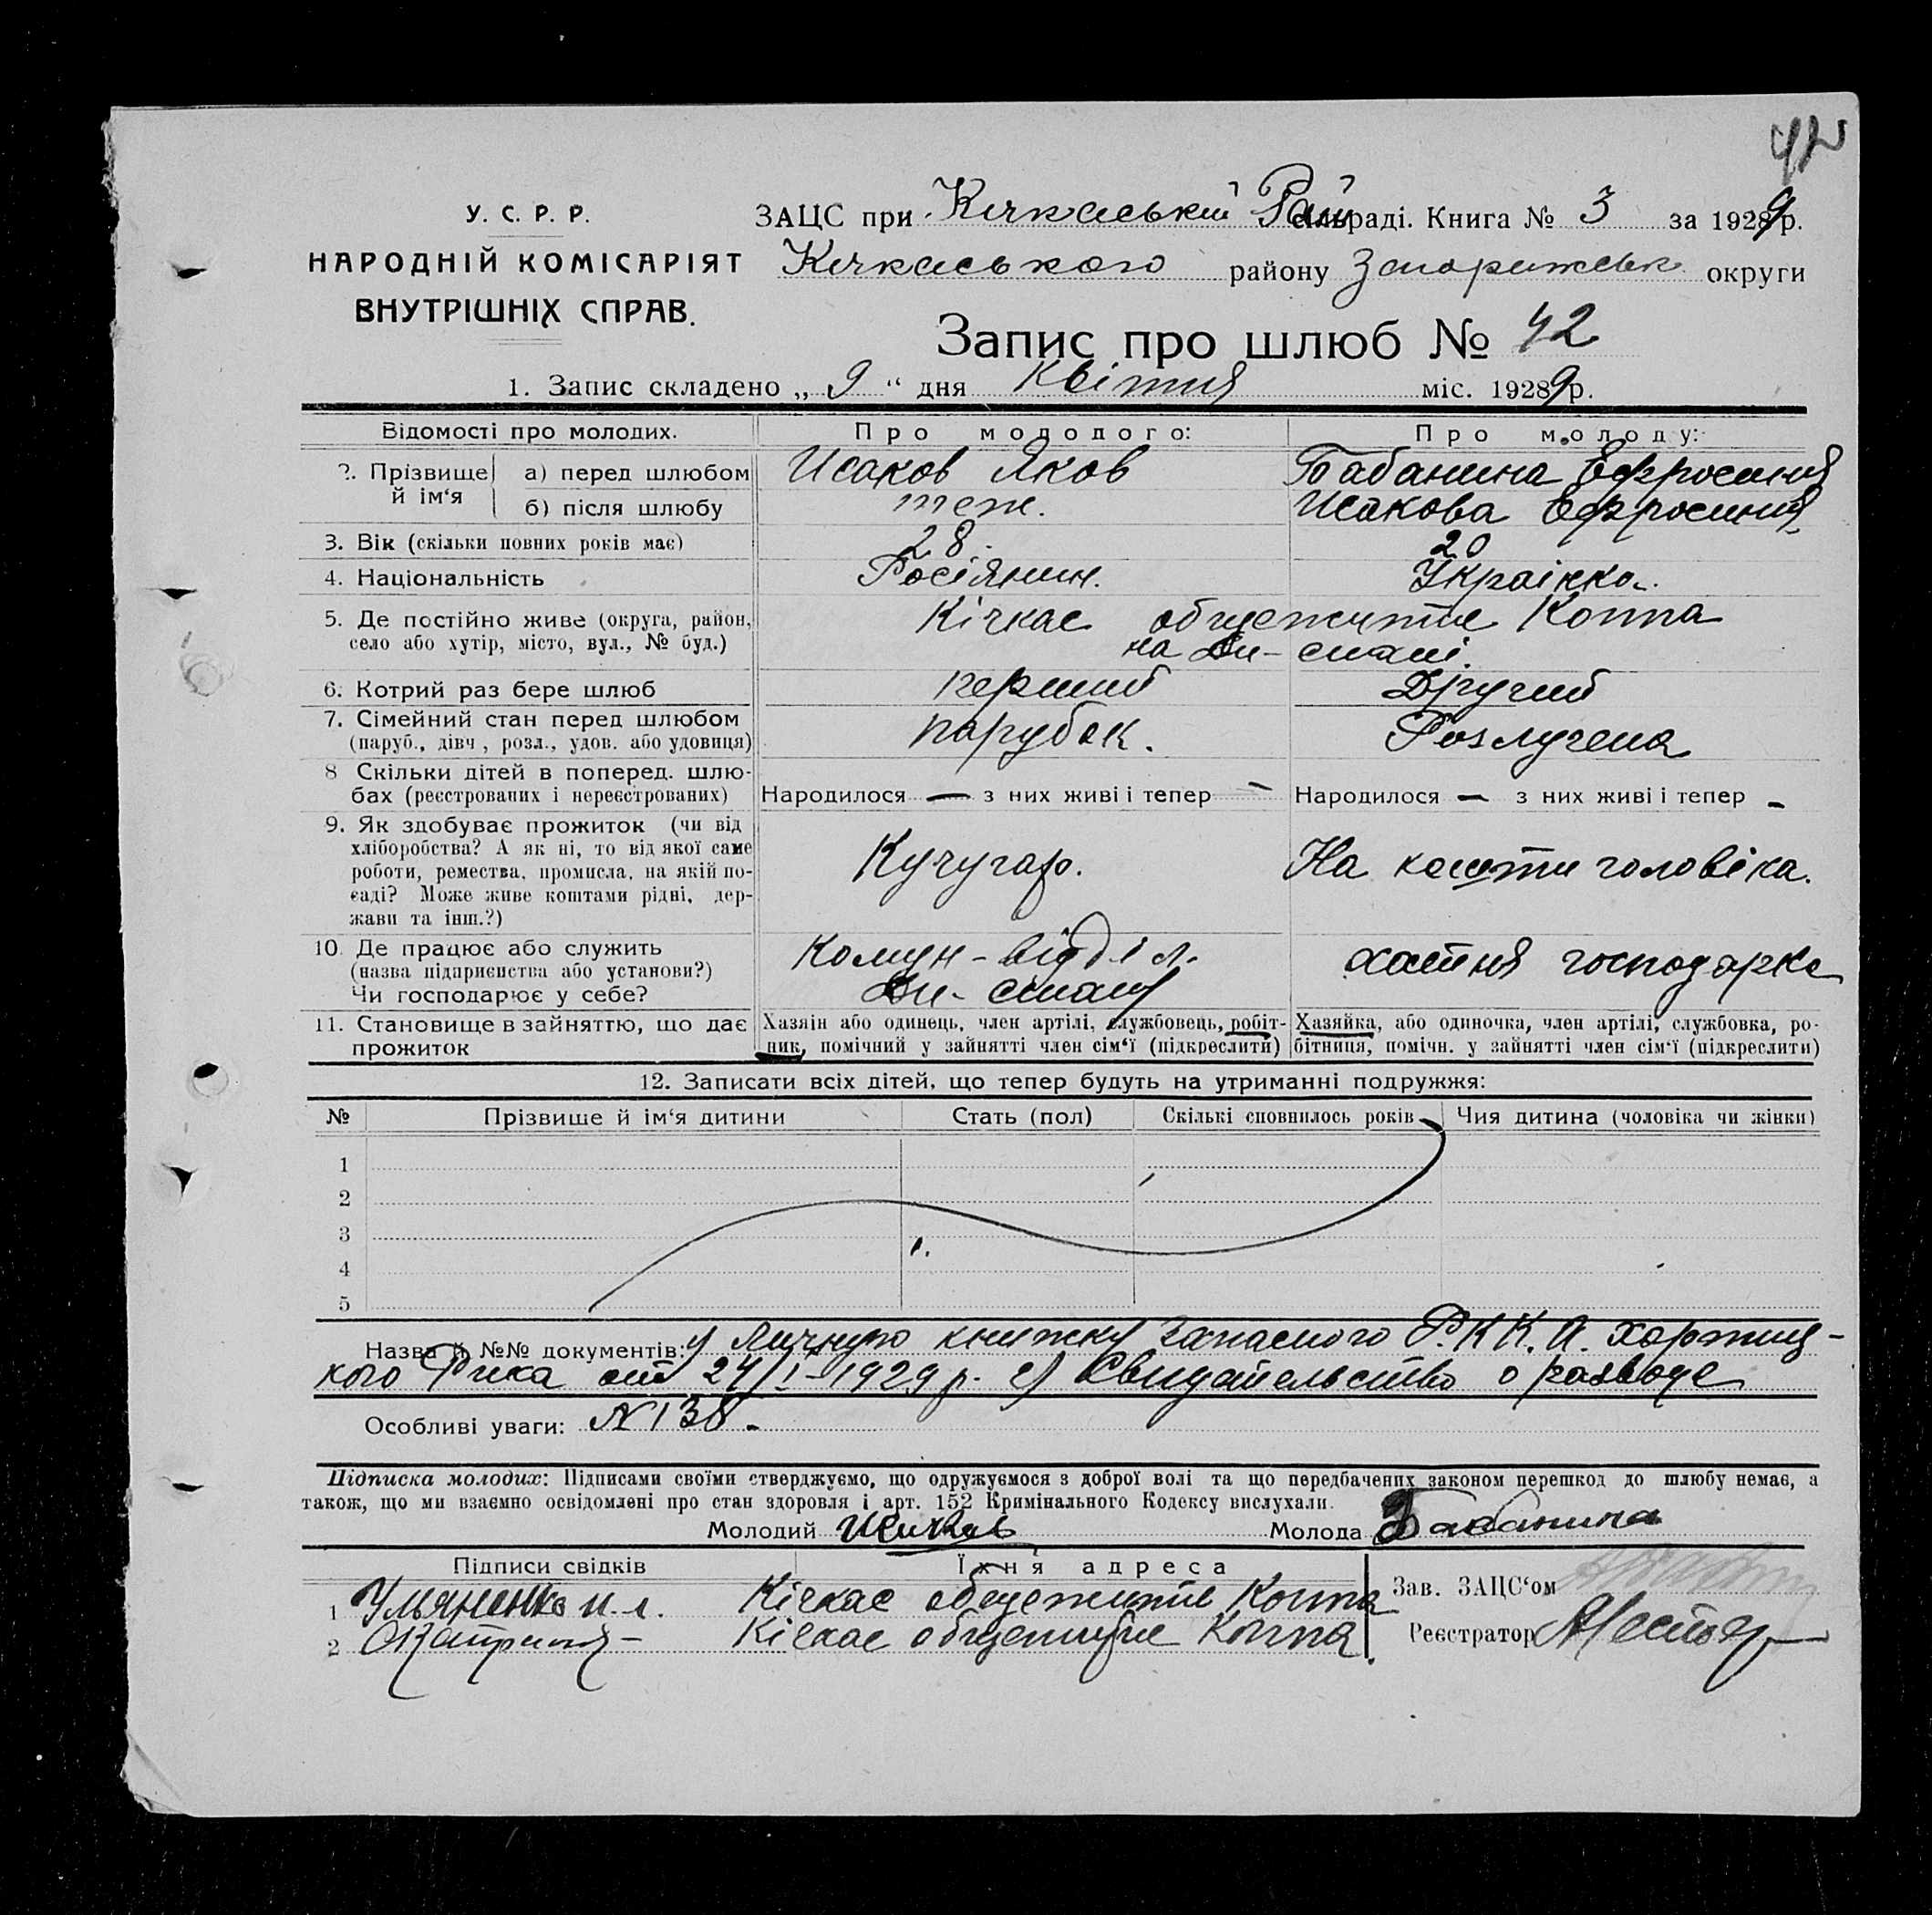 42
У. С. Р. Р.
НАРОДНІЙ КОМІСАРІЯТ
ВНУТРІШНІХ СПРАВ.
ЗАЦС при Кічкаський Рай сільраді. Книга № 3 за 1929 р.
Кічкаського району Запорижськ округи
Запис про шлюб № 42
1. Запис складено „ 9 “ дня Квітня міс. 1929 р.
Відомості про молодих. Про молодого: Про молоду:
2. Прізвище й ім‘я а) перед шлюбом Исаков Яков Бабанина Ефросиния
б) після шлюбу теж. Исакова Ефросиния
3. Вік (скільки повних років має) 28. 20
4. Національність Росіянин. Українка.
5. Де постійно живе (округа, район, Кічкас общежитие Коппа
село або хутір, місто, вул., № буд.) на Дн-стані.
6. Котрий раз бере шлюб перший Другий
7. Сімейний стан перед шлюбом парубок. Розлучена
(паруб., дівч , розл., удов. або удовиця)
8 Скільки дітей в поперед. шлю-
бах (реєстрованих і нереєстрованих) Народилося — з них живі і тепер — Народилося — з них живі і тепер -
9. Як здобуває прожиток (чи від
хліборобства? А як ні, то від якої саме
роботи, ремества, промисла, на якій по- Кучугар. На кошти чоловіка.
саді? Може живе коштами рідні, дер-
жави та інш.?)
10. Де працює або служить Комун-відділ. хатня господарка
(назва підприєиства або установи?) Дн-стану
Чи господарює у себе?
11. Становище в зайняттю, що дає Хазяін або одинець, член артілі, службовець, робіт- Хазяйка, або одиночка, член артілі, службовка, ро-
прожиток ник, помічний у зайнятті член сім‘ї (підкреслити) бітниця, помічн. у зайнятті член сім‘ї (підкреслити)
12. Записати всіх дітей, що тепер будуть на утриманні подружжя:
№ Прізвише й ім‘я дитини Стать (пол) Скількі сповнилось років Чия дитина (чоловіка чи жінки)
1
2
3
4
5
Назва й №№ документів: 1) Личную книжку Запасного Р.К.К.А. Хортиц-
кого Рика от 24/I-1929 р. 2) Свидетельство о разводе
Особливі уваги: N 138.
Підписка молодих: Підписами своїми стверджуємо, що одружуємося з доброї волі та що передбачених законом перешкод до шлюбу немає, а
також, що ми взаємно освідомлені про стан здоровля і арт. 152 Кримінального Кодексу вислухали.
Молодий Исаков Молода Бабанина
Підписи свідків Їхня адреса
Зав. ЗАЦС‘ом
1 Ульяненко И. Л. Кічкас общежитие Коппа
2 Кічкас общежитие Коппа.
Реєстратор